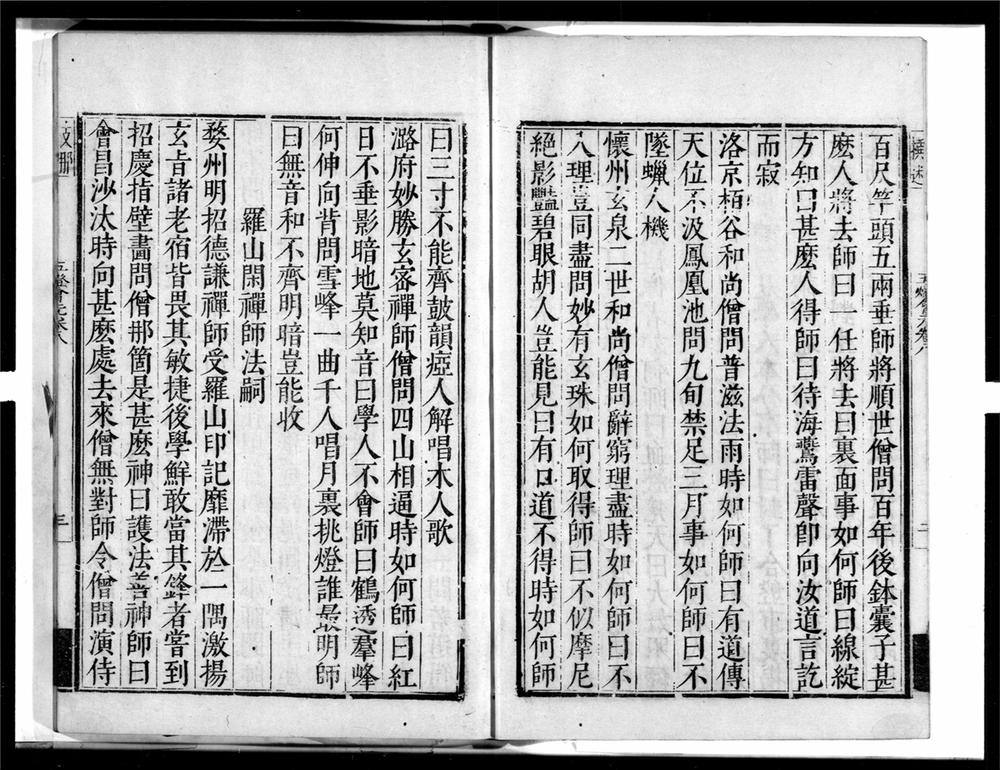 百尺竿頭五兩垂師將順世僧問百年後鉢囊子甚
麽人將去師曰一任將去曰裏面事如何師曰線綻
方知曰甚麽人得師曰待海鷰雷聲卽向汝道言訖
而寂
洛京栢谷和尚僧問普滋法雨時如何師曰有道傳
天位不汲鳳凰池問九旬禁足三月事如何師曰不
墜蠟人機
懷州玄泉二世和尚僧問辭窮理盡時如何師曰不
入理豈同盡問妙有玄珠如何取得師曰不似摩尼
絕影豔碧眼胡人豈能見曰有口道不得時如何師
曰三寸不能齊鼓韻瘂人解唱木人歌
潞府妙勝玄密禪師僧問四山相逼時如何師曰紅
日不垂影暗地莫知音曰學人不會師曰鶴透羣峰
何伸向背問雪峰一曲千人唱月裏挑燈誰最明師
曰無音和不齊明暗豈能收
羅山閑禪師法嗣
婺州明招德謙禪師受羅山印記靡滯於一隅激揚
玄旨諸老宿皆畏其敏捷後學鮮敢當其鋒者嘗到
招慶指壁畫問僧那箇是甚麽神曰護法善神師曰
會昌沙汰時向甚麽處去來僧無對師令僧問演侍